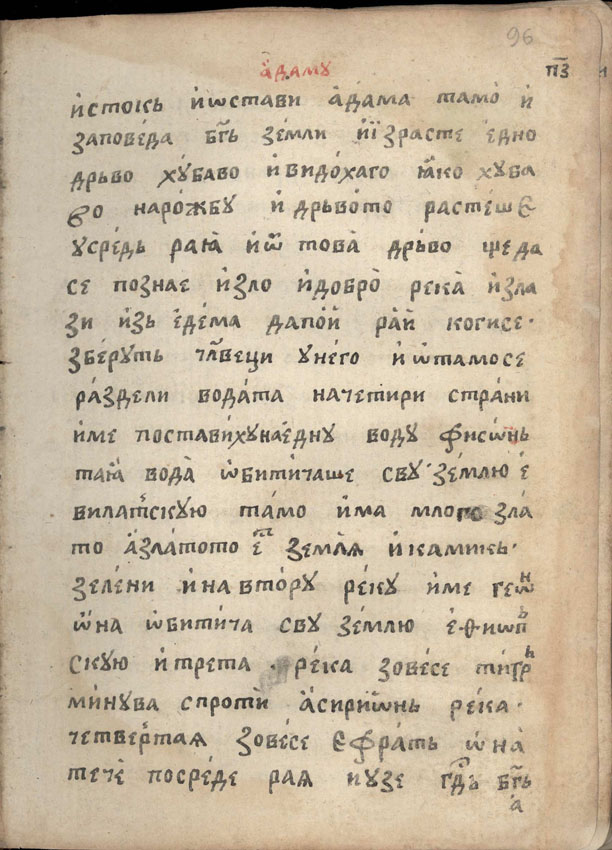 96
а҆даму п҃з
и҆стокь и҆ѡстави а҆дама тамо̀ и҆
заповѣ́да бг҃ь зе́мли и҆ї́зрасте е҆дно
дрьво хꙋ́баво и҆видо́хаго ꙗ҆ко хꙋба
во наро́жбꙋ и҆ дрьво̀то расте́ше
ꙋсре́дь раꙗ̀ и҆ѿ това̀ дрьво щеда
се познае и҆зло и҆добро̀ река̀ и҆зла
зи и҆зь е҆де́ма дапои́ раи́ когисе·
збе́рꙋть чл҃веци ꙋнего и҆ѿтамосе
ра́здели вода̀та начетири страни
и҆ме поставихꙋнае҆днꙋ водꙋ фисѡ́нь
таꙗ҆ вода̀ ѡ҆бити́чаше свꙋ зе́млю е҆
вилатскую та́мо и҆ма млого зла́
то а҆зла́тото е҆ст земла̀ и҆камикь·
зеле́ни и҆на вто́рꙋ ре́кꙋ и҆ме геѡ҆н
ѡ҆на ѡ҆бити́ча свꙋ зе́млю е҆ѳиѡ҆пь
скую и҆трета · ре́ка зовесе тигрь
ми́нꙋва спротѝ а҆сириѡ҆нь река·
четвертая зове́се ефра́ть ѡ҆на̀
течѐ посре́де рая и҆ꙋзе гд҃ь бг҃ь
а҆